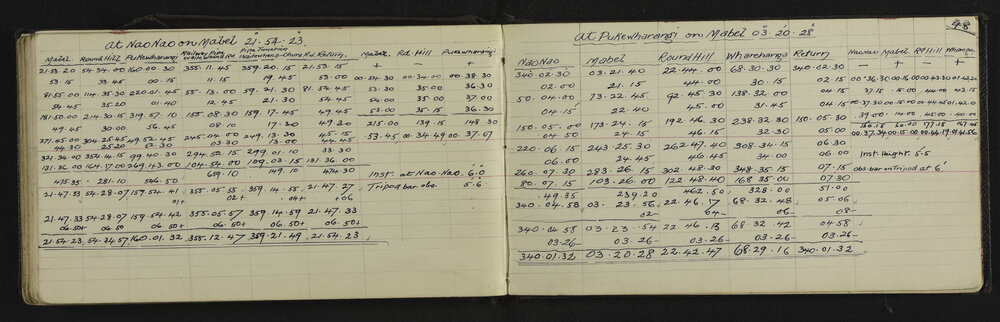 at NaoNao on Mabel 21.54.23
Mabel Round Hill Pukewharangi Railway Pipe Waikawana Rd Pipe Junction Waikawana-Otara Rd. Return. Mabel. Rd. Hill Pukewharangi
21.53.20 54.34.00 160.00.30 355.11.45 359.20.15 21.53.15 + − +
53.15 33.45 00.15 11.15 19.45 53.00 00.54.30 00.34.00 00.38.30
81.55.00 114.35.30 220.01.45 55.13.00 59.21.30 81.54.45 53.30 35.00 36.30
54.45 35.20 01.40 12.45 21.30 54.45 54.00 35.00 37.00
181.50.00 214.30.15 319.57.10 155.08.30 159.17.45 49.30 53.00 35.15 36.30
49.45 30.00 56.45 08.10 17.30 49.20 215.00 139.15 148.30
271.45.00 304.25.45 49.52.45 245.04.00 249.13.30 45.15 53.45 00.34.49 00.37.07
44.30 25.20 52.30 03.30 13.00 44.45
321.34.00 354.15 99.40.30 294.52.15 299.01.10 33.30
131.36.00 164.17.00 269.43.00 104.54.00 109.03.15 131.36.00
475.35 281.10 346.50 659.10 149.10 474.30 Inst. at Nao Nao. 6.0
21.47.33 54.28.07 157.54.41 355.05.55 359.14.55 21.47.27 Tripod bar obs. 5.6
01+ 02+ 04+ +06
21.47.33 54.28.07 159.54.42 355.05.57 359.14.59 21.47.33
06.50 06.50 06.50+ 06.50+ 06.50+ 06.50+
21.54.23 54.34.57 160.01.32 355.12.47 359.21.49 21.54.23
48
at Pukewharangi on Mabel 03.20.28
NaoNao Mabel Round Hill Wharehanga Return NaoNao Mabel Rd Hill Whanga
340.02.30 03.21.40 22.44.00 68.30.30 340.02.30 − + − +
02.00 21.15 44.00 30.15 02.15
50.04.00 73.22.45 92.45.30 138.32.00 04.15
04.15 22.40 45.00 31.45 04.15
150.05.00 173.24.15 192.46.30 238.32.30 150.05.30
04.50 24.15 46.15 32.30 05.00
220.06.15 243.25.30 262.47.40 308.34.15 06.30
06.00 24.45 46.45 34.00 06.00 Inst. Height. 5.5
260.07.30 283.26.15 302.48.30 348.35.15 07.15 obs. bar on Tripod at 6'
80.07.15 103.26.00 122.48.40 168.35.00 07.30
49.35 239.20 462.50 328.00 51.00
340.04.58 03.23.56 22.46.17 68.32.48 05.06
02− 04− 06 08−
340.04.58 03.23.54 22.46.13 68.32.42 04.58
03.26− 03.26 03.26− 03.26− 03.26−
340.01.32 03.20.28 22.42.47 68.29.16 340.01.32